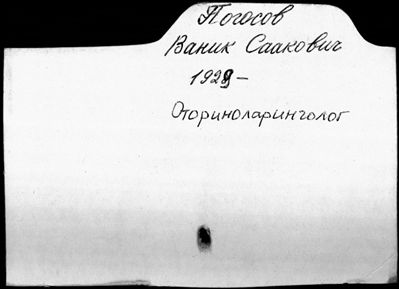 Погосов
Ваник Саакович
1929-
Оториноларинголог